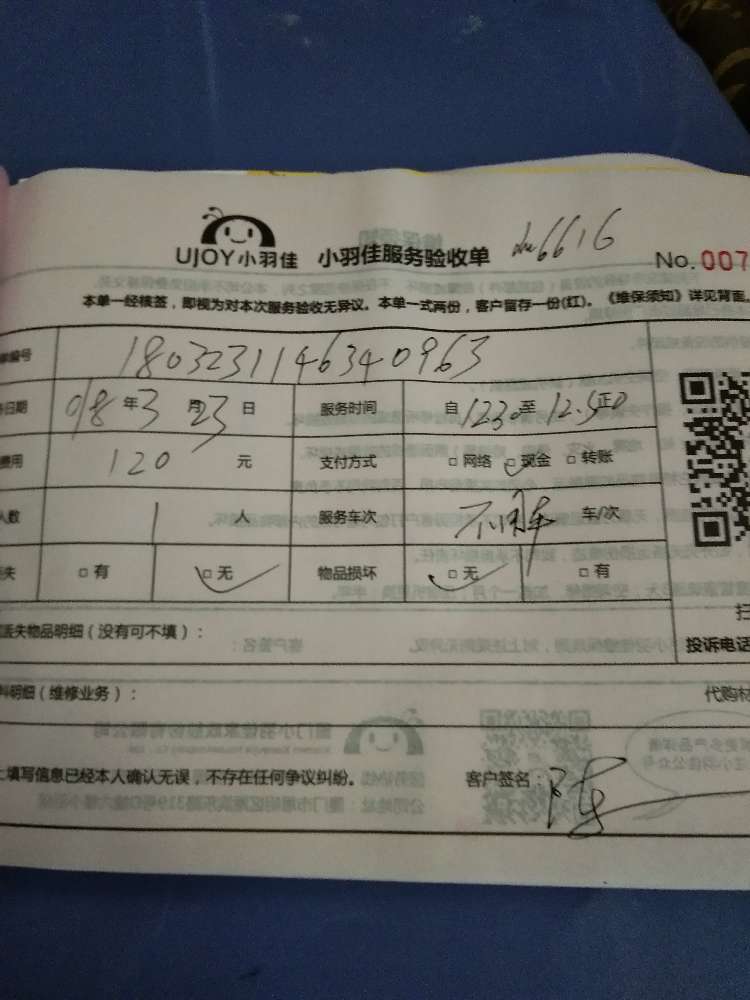 UJOY小羽佳 小羽佳服务验收单 6616 No.007
本单一经核签，即视为对本次服务验收无异议。本单一式两份，客户留存一份(红)。《维保须知》详见背面。
编号 1803231146340963
日期 018年3月23日 服务时间 自1230至12.50止
费用 120 元 支付方式 □网络 □现金 □转账
人数 1 人 服务车次 车/次
失 □有 □无 物品损坏 □无 □有
扫
丢失物品明细（没有可不填）： 投诉电话
料明细（维修业务）： 代购材
上填写信息已经本人确认无误，不存在任何争议纠纷。 客户签名：